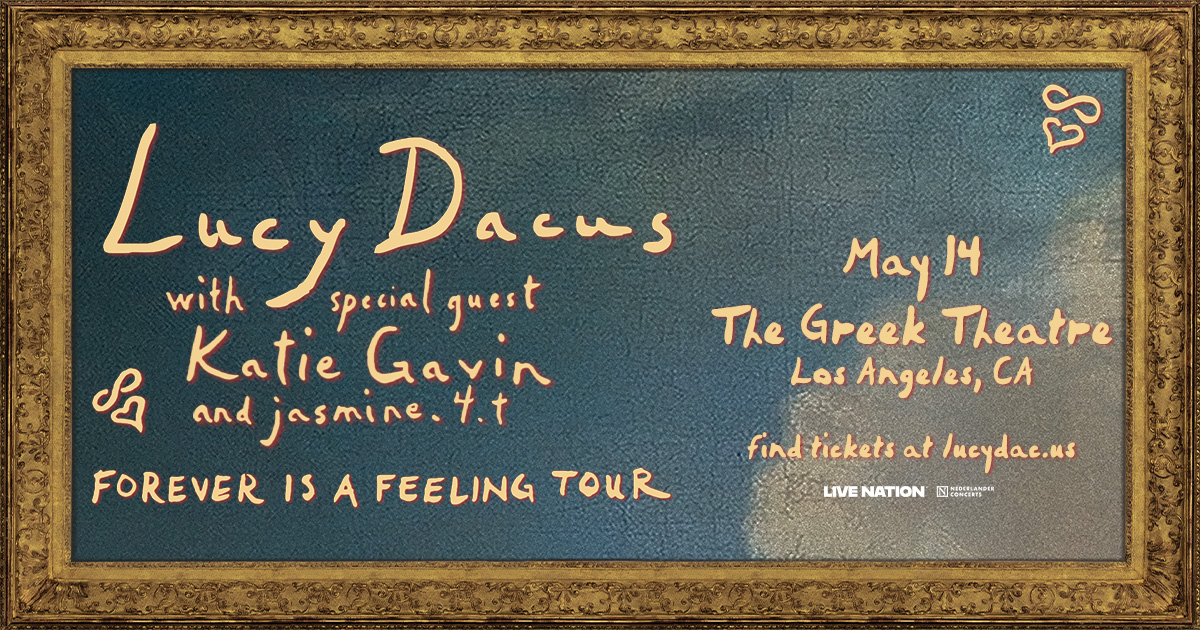 Lucy Dacus
with special guest
Katie Gavin
and jasmine.4.t
FOREVER IS A FEELING TOUR
May 14
The Greek Theatre
Los Angeles, CA
find tickets at lucydac.us
LIVE NATION
N NEDERLANDER
CONCERTS